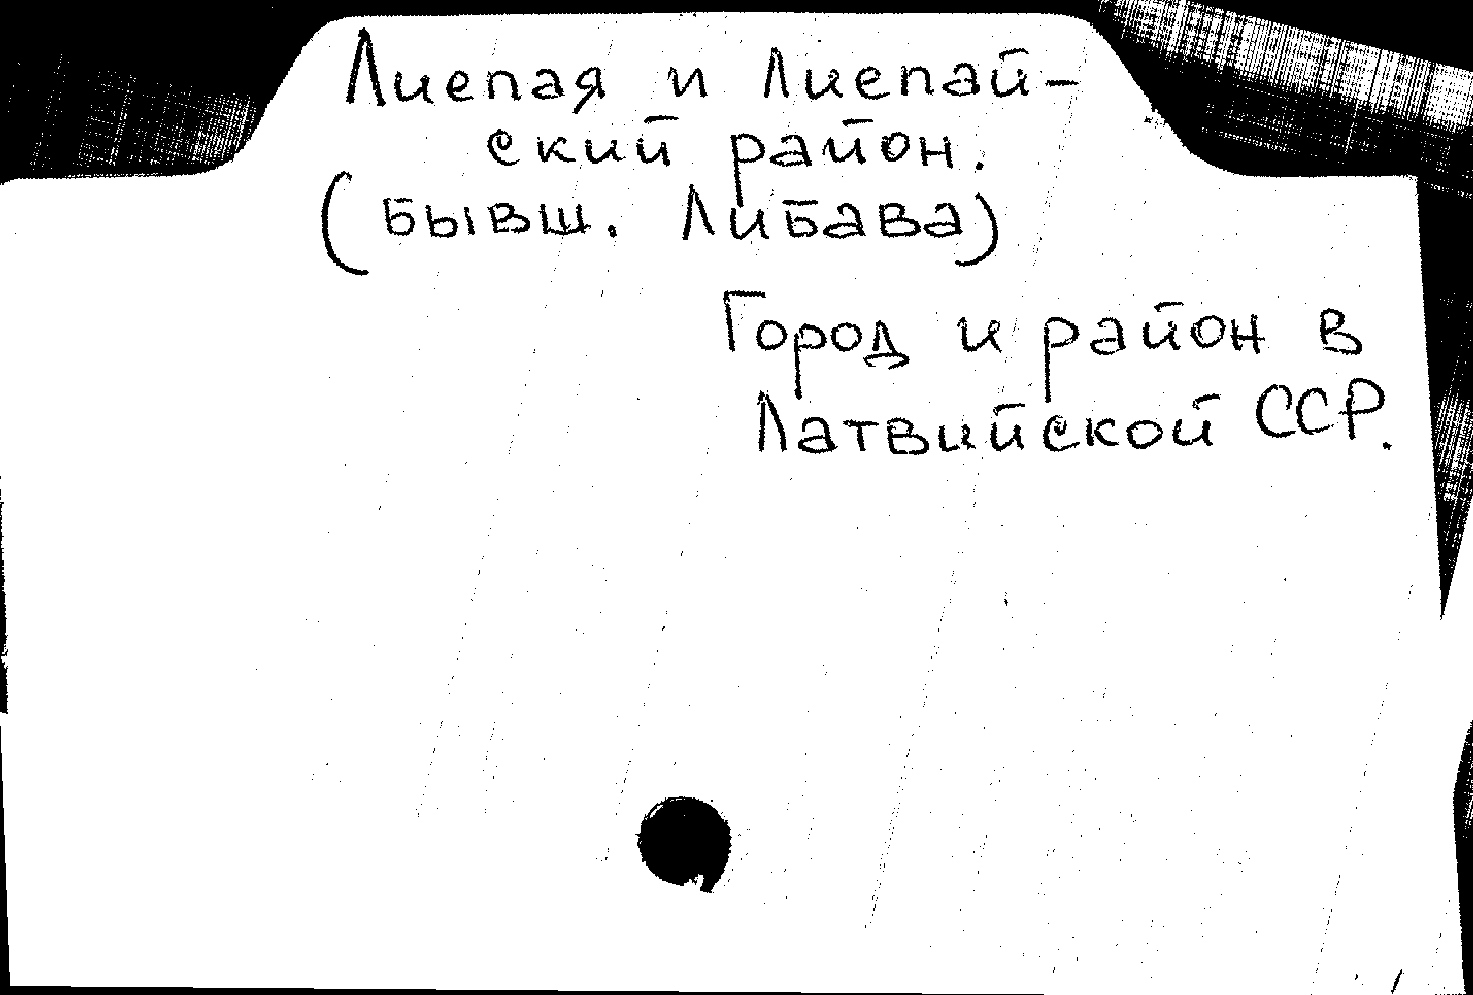 Лиепая и Лиепай-
ский район.
(бывш. Либава)
Город и район в
Латвийской ССР.